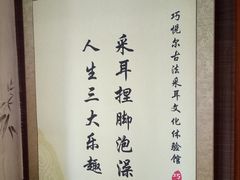 巧悦尔古法采耳文化体验馆
采耳捏脚泡澡
人生三大乐趣
巧